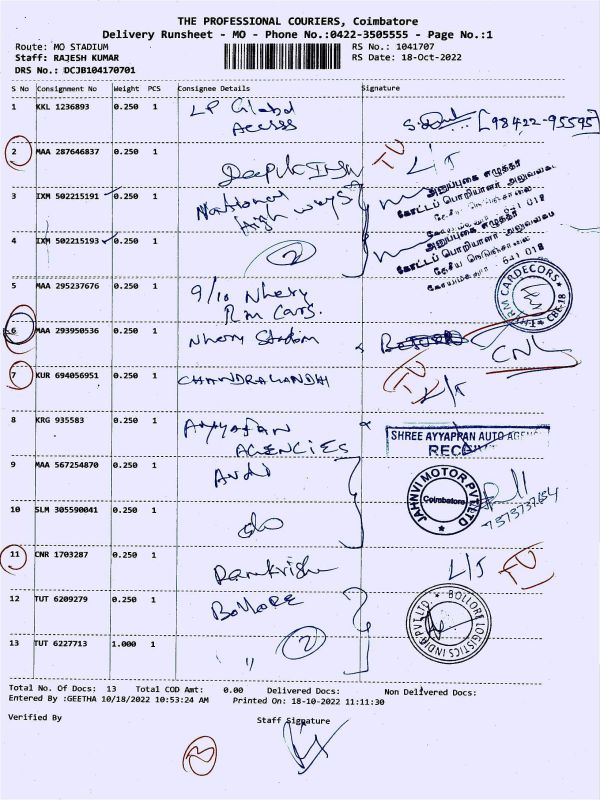 THE PROFESSIONAL COURIERS, Coimbatore
Delivery Runsheet - MO - Phone No.:0422-3505555 - Page No.:1
Route: MO STADIUM
RS No.: 1041707
Staff: RAJESH KUMAR
RS Date: 18-Oct-2022
DRS No.: DCJB104170701
S No Consignment No Weight PCS Consignee Details Signature
1 KKL 1236893 0.250 1 LP Global
Access
[98422-95595]
2 MAA 287646837 0.250 1 Deepik
TU L/T
3 IXM 502215191 0.250 1 National
High ways
அனுப்புகை எழுத்தர்
கோட்டப் பொறியாளர் அலுவலகம்
4 IXM 502215193 0.250 1 2
அனுப்புகை எழுத்தர்
கோட்டப் பொறியாளர் அலுவலகம்
641 018
5 MAA 295237676 0.250 1 9/10 Nhery
Rm Cars.
RM CARDECORS CBE-18
6 MAA 293950536 0.250 1 Nhery Stadiom
CNL
7 KUR 694056951 0.250 1 CHANDRAGANDHI
TU L/T
8 KRG 935583 0.250 1 AYYAPAN
AGENCIES
SHREE AYYAPPAN AUTO AGENC
9 MAA 567254870 0.250 1
JAHNVI MOTOR PVT LTD
Coimbatore
10 SLM 305590041 0.250 1 do
11 CNR 1703287 0.250 1 Ramkrish
L/T TU
12 TUT 6209279 0.250 1 Bollore
BOLLORE LOGISTICS INDIA PVT. LTD.
13 TUT 6227713 1.000 1 " 2
Total No. Of Docs: 13 Total COD Amt: 0.00 Delivered Docs: Non Delivered Docs:
Entered By :GEETHA 10/18/2022 10:53:24 AM Printed On: 18-10-2022 11:11:30
Verified By Staff Signature